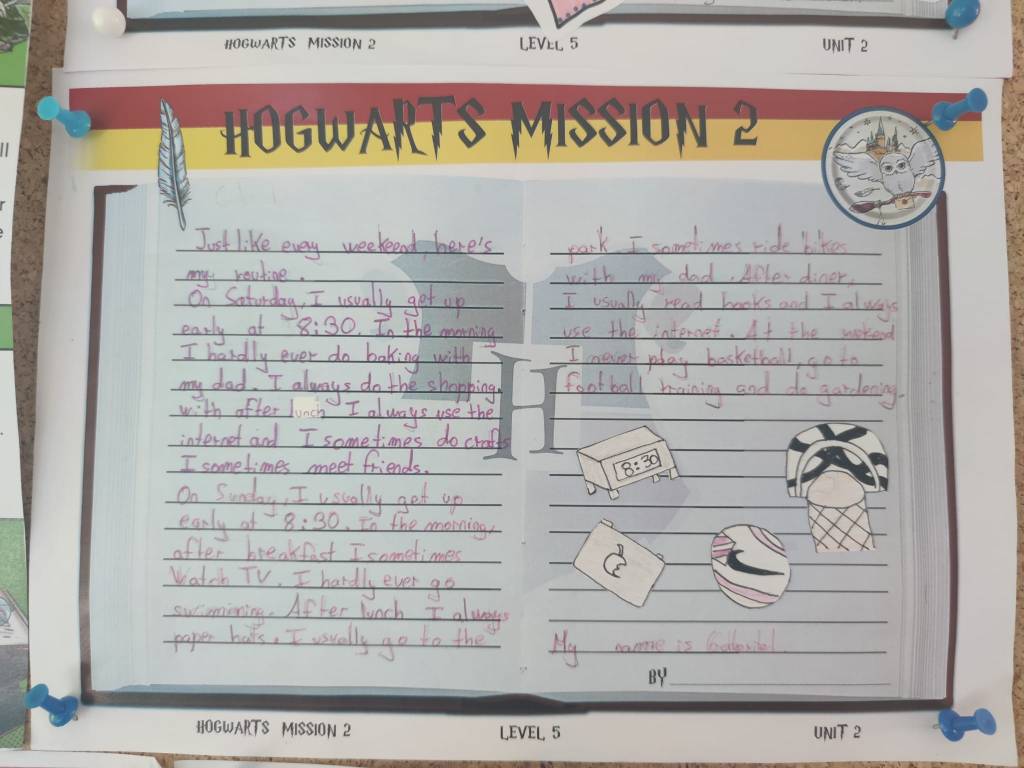 HOGWARTS MISSION 2 LEVEL 5 UNIT 2
HOGWARTS MISSION 2
Just like every weekeend, here's
my routine.
On Saturday, I usually get up
early at 8:30. In the morning
I hardly ever do baking with
my dad. I always do the shopping.
with after lunch I always use the
internet and I sometimes do crafts
I sometimes meet friends.
On Sunday, I usually get up
early at 8:30. In the morning,
after breakfast I sometimes
Watch TV. I hardly ever go
swimming. After lunch I always
paper hats. I usually go to the
park I sometimes ride bikes
with my dad. After diner,
I usually read books and I always
use the internet. At the weekend
I never play basketball, go to
football training and do gardening.
8:30
H
My name is
BY
HOGWARTS MISSION 2 LEVEL 5 UNIT 2